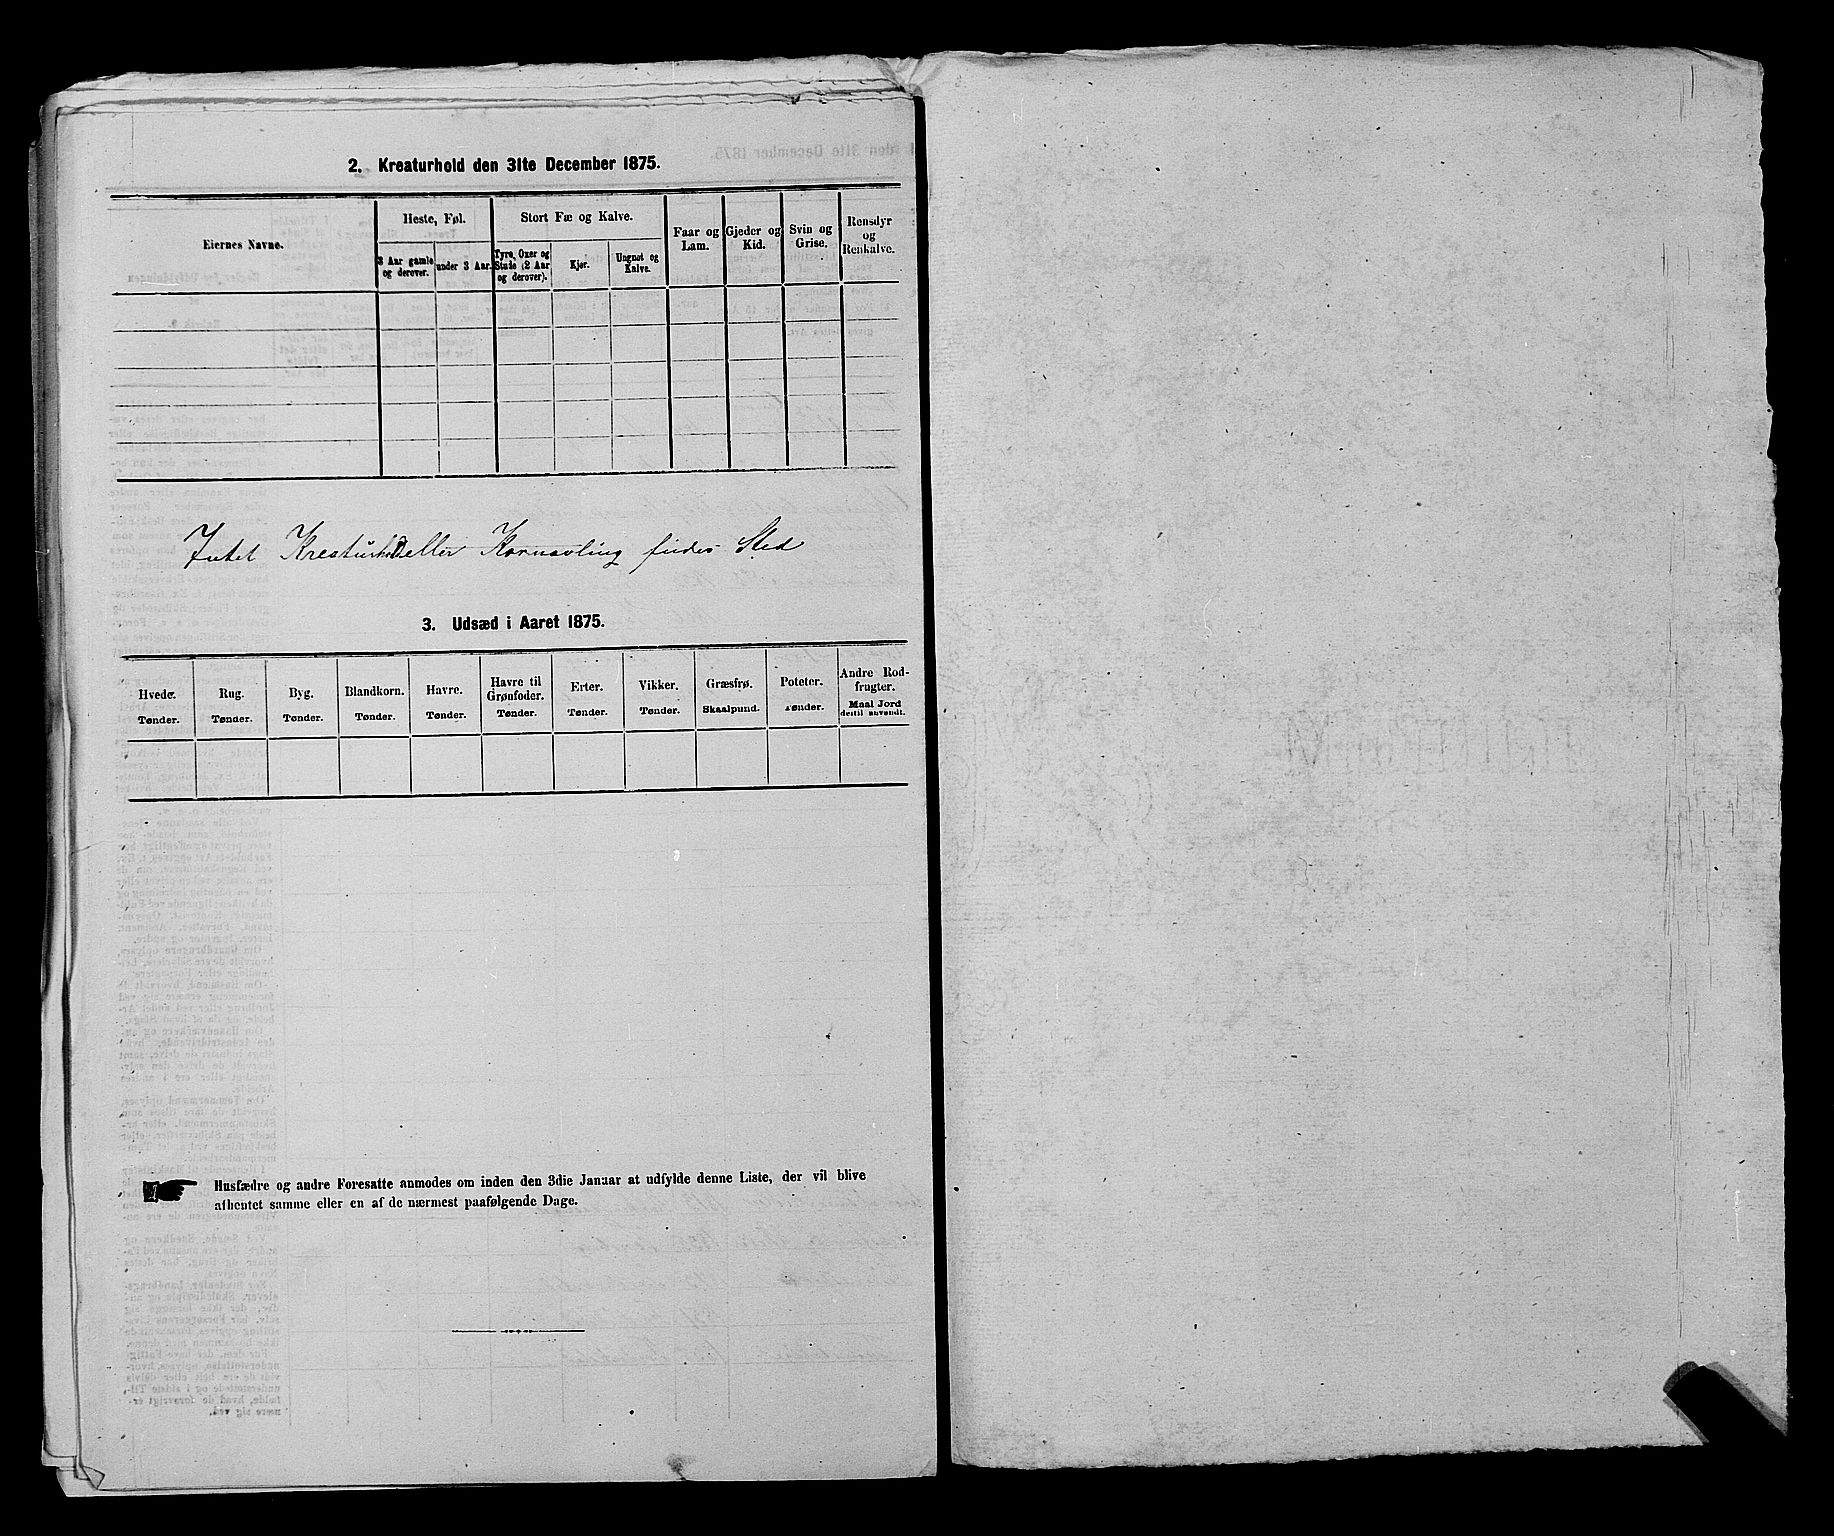 2. Kreaturhold den 31te December 1875.
Eiernes Navne.
Heste, Føl.
3 Aar gamle og derover.
under 3 Aar.
Stort Fæ og Kalve.
Tyre, Oxer og Stude (2 Aar og derover).
Kjør.
Ungnøt og Kalve.
Faar og Lam.
Gjeder og Kid.
Svin og Grise.
Rensdyr og Renkalve.
Intet Kreaturhold eller Kornavling findes Sted
3. Udsæd i Aaret 1875.
Hvede. Tønder.
Rug. Tønder.
Byg. Tønder.
Blandkorn. Tønder.
Havre. Tønder.
Havre til Grønfoder. Tønder.
Erter. Tønder.
Vikker. Tønder.
Græsfrø. Skaalpund.
Poteter. Tønder.
Andre Rodfrugter. Maal Jord dertil anvendt.
Husfædre og andre Foresatte anmodes om inden den 3die Januar at udfylde denne Liste, der vil blive
afhentet samme eller en af de nærmest paafølgende Dage.